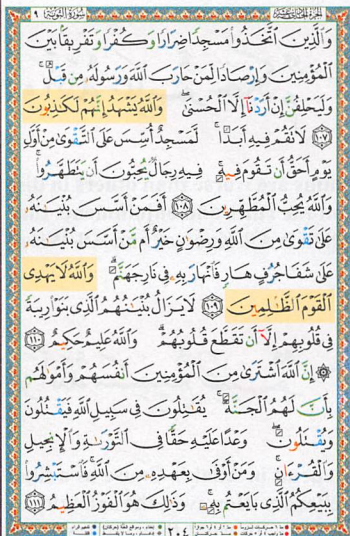 سُورَةُ التَّوْبَة ٩
وَالَّذِينَ اتَّخَذُوا مَسْجِدًا ضِرَارًا وَكُفْرًا وَتَفْرِيقًا بَيْنَ
الْمُؤْمِنِينَ وَإِرْصَادًا لِمَنْ حَارَبَ اللَّهَ وَرَسُولَهُ مِن قَبْلُ ۚ
وَلَيَحْلِفُنَّ إِنْ أَرَدْنَا إِلَّا الْحُسْنَىٰ ۖ وَاللَّهُ يَشْهَدُ إِنَّهُمْ لَكَاذِبُونَ
١٠٧ لَا تَقُمْ فِيهِ أَبَدًا ۚ لَّمَسْجِدٌ أُسِّسَ عَلَى التَّقْوَىٰ مِنْ أَوَّلِ
يَوْمٍ أَحَقُّ أَن تَقُومَ فِيهِ ۚ فِيهِ رِجَالٌ يُحِبُّونَ أَن يَتَطَهَّرُوا ۚ
وَاللَّهُ يُحِبُّ الْمُطَّهِّرِينَ ١٠٨ أَفَمَنْ أَسَّسَ بُنْيَانَهُ
عَلَىٰ تَقْوَىٰ مِنَ اللَّهِ وَرِضْوَانٍ خَيْرٌ أَم مَّنْ أَسَّسَ بُنْيَانَهُ
عَلَىٰ شَفَا جُرُفٍ هَارٍ فَانْهَارَ بِهِ فِي نَارِ جَهَنَّمَ ۗ وَاللَّهُ لَا يَهْدِي
الْقَوْمَ الظَّالِمِينَ ١٠٩ لَا يَزَالُ بُنْيَانُهُمُ الَّذِي بَنَوْا رِيبَةً
فِي قُلُوبِهِمْ إِلَّا أَن تَقَطَّعَ قُلُوبُهُمْ ۗ وَاللَّهُ عَلِيمٌ حَكِيمٌ ١١٠
۞ إِنَّ اللَّهَ اشْتَرَىٰ مِنَ الْمُؤْمِنِينَ أَنفُسَهُمْ وَأَمْوَالَهُم
بِأَنَّ لَهُمُ الْجَنَّةَ ۚ يُقَاتِلُونَ فِي سَبِيلِ اللَّهِ فَيَقْتُلُونَ
وَيُقْتَلُونَ ۖ وَعْدًا عَلَيْهِ حَقًّا فِي التَّوْرَاةِ وَالْإِنجِيلِ
وَالْقُرْآنِ ۚ وَمَنْ أَوْفَىٰ بِعَهْدِهِ مِنَ اللَّهِ ۚ فَاسْتَبْشِرُوا
بِبَيْعِكُمُ الَّذِي بَايَعْتُم بِهِ ۚ وَذَٰلِكَ هُوَ الْفَوْزُ الْعَظِيمُ ١١١
٢٠٤